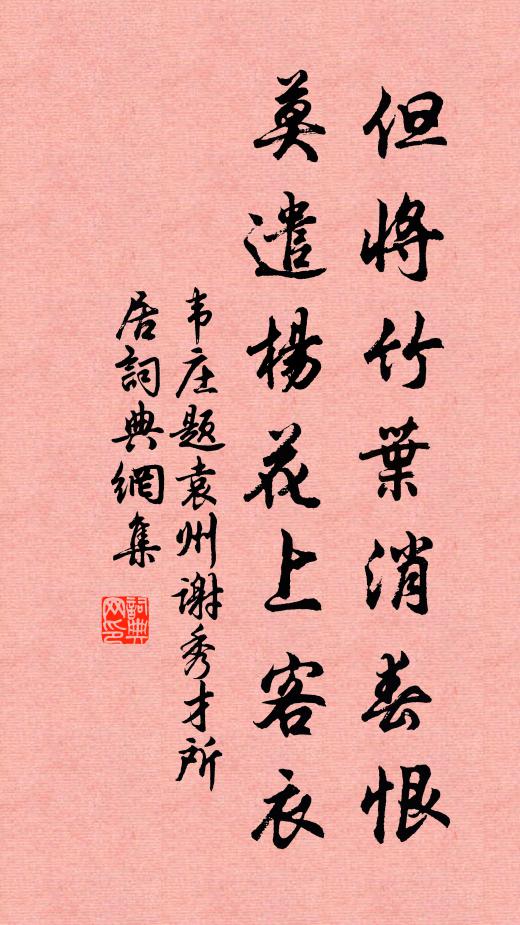 但將竹葉消春恨
莫遣楊花上客衣
韦庄题袁州谢秀才所
居詞典網集
詞典
网印